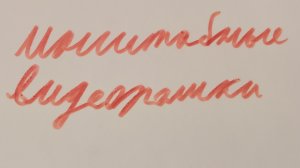 Масштабные
видеорамки